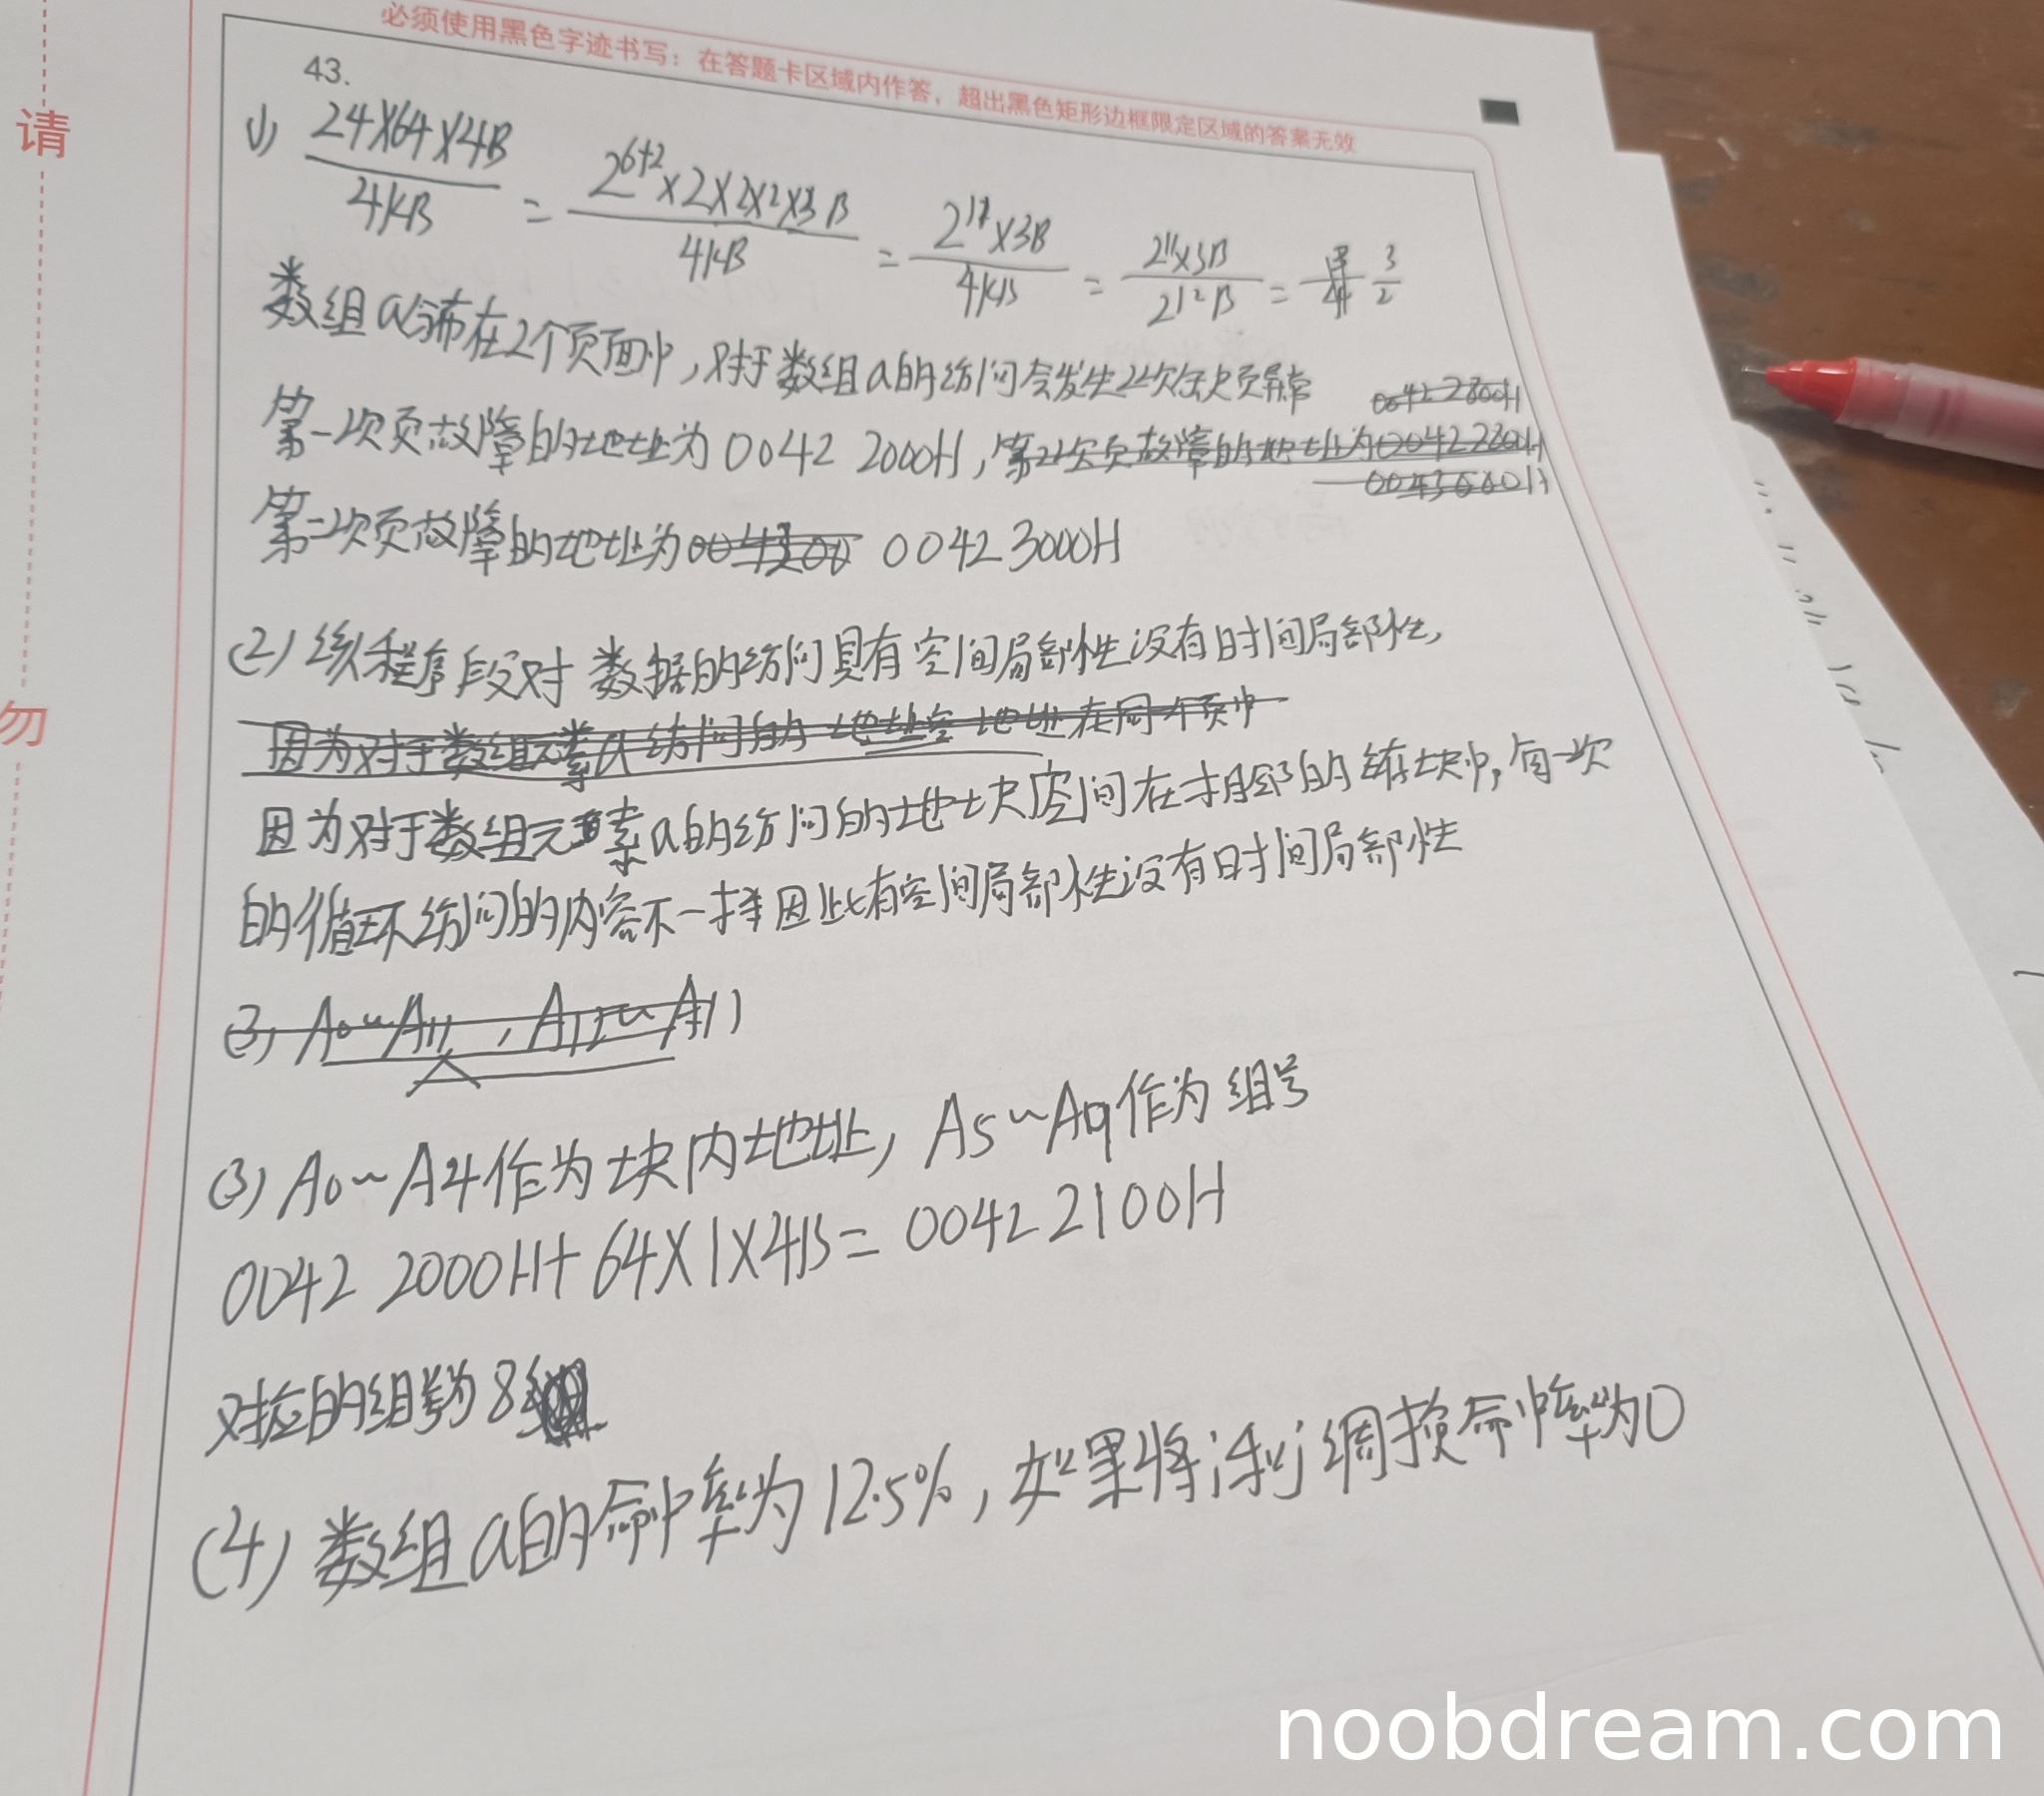 必须使用黑色字迹书写：在答题卡区域内作答，超出黑色矩形边框限定区域的答案无效
请
勿
43.
(1) 24X64X4B/4KB = 2^6+2X2X2X2X3B/4KB = X3B/4KB = 2^11X3B/2^12B = 3/2
数组a分布在2个页面中，对于数组a的访问会发生2次缺页异常
第一次页故障的地址为0042 2000H，
第二次页故障的地址为 0042 3000H
(2) 该程序段对数据的访问具有空间局部性没有时间局部性，
因为对于数组元素a的访问的地址块空间在相邻的块中，每一次
的循环访问的内容不一样因此有空间局部性没有时间局部性
(3) A0~A4作为块内地址，A5~A9作为组号
0042 2000H+64X1X4B=0042 2100H
对应的组号为8
(4) 数组a的命中率为12.5%，如果将i和j调换命中率为0
noobdream.com